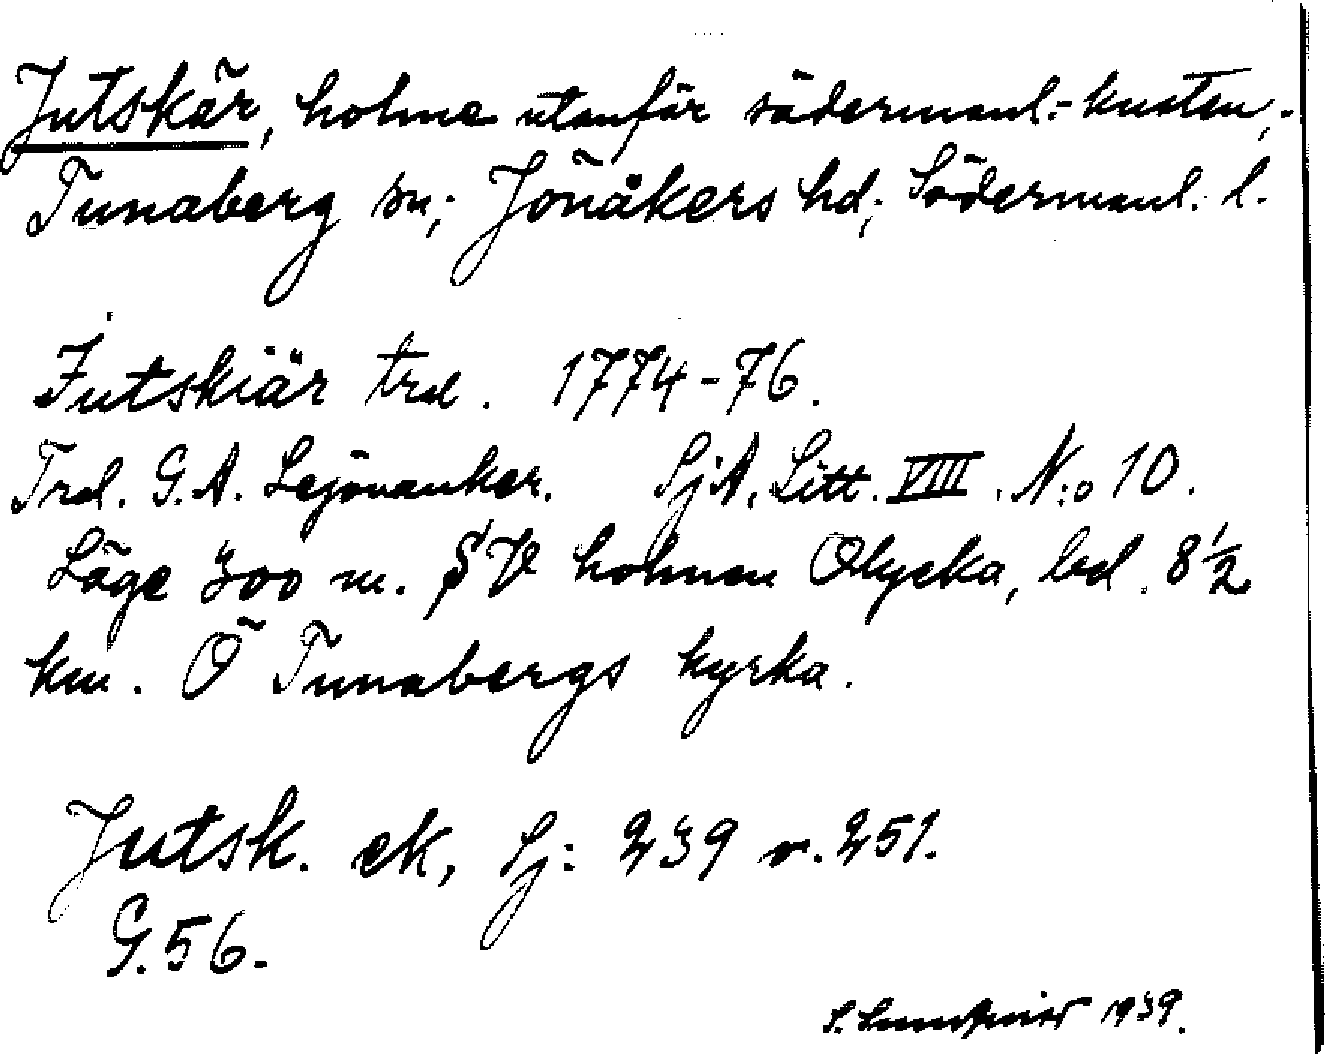 Jutskär, holme utanför södermanl.-kusten,
Tunaberg sn; Jönåkers hd; Södermanl. l.
Jutskiär trd. 1774-76.
Trd. G.A. Lejonanker. SjA, Litt. VIII. N:o 10.
Läge 300 m. SV holmen Olycka, bel. 8 1/2
km. Ö Tunabergs kyrka.
Jutsk. ek, Sj: 239 o. 251.
G.56.
S. Lundqvist 1939.